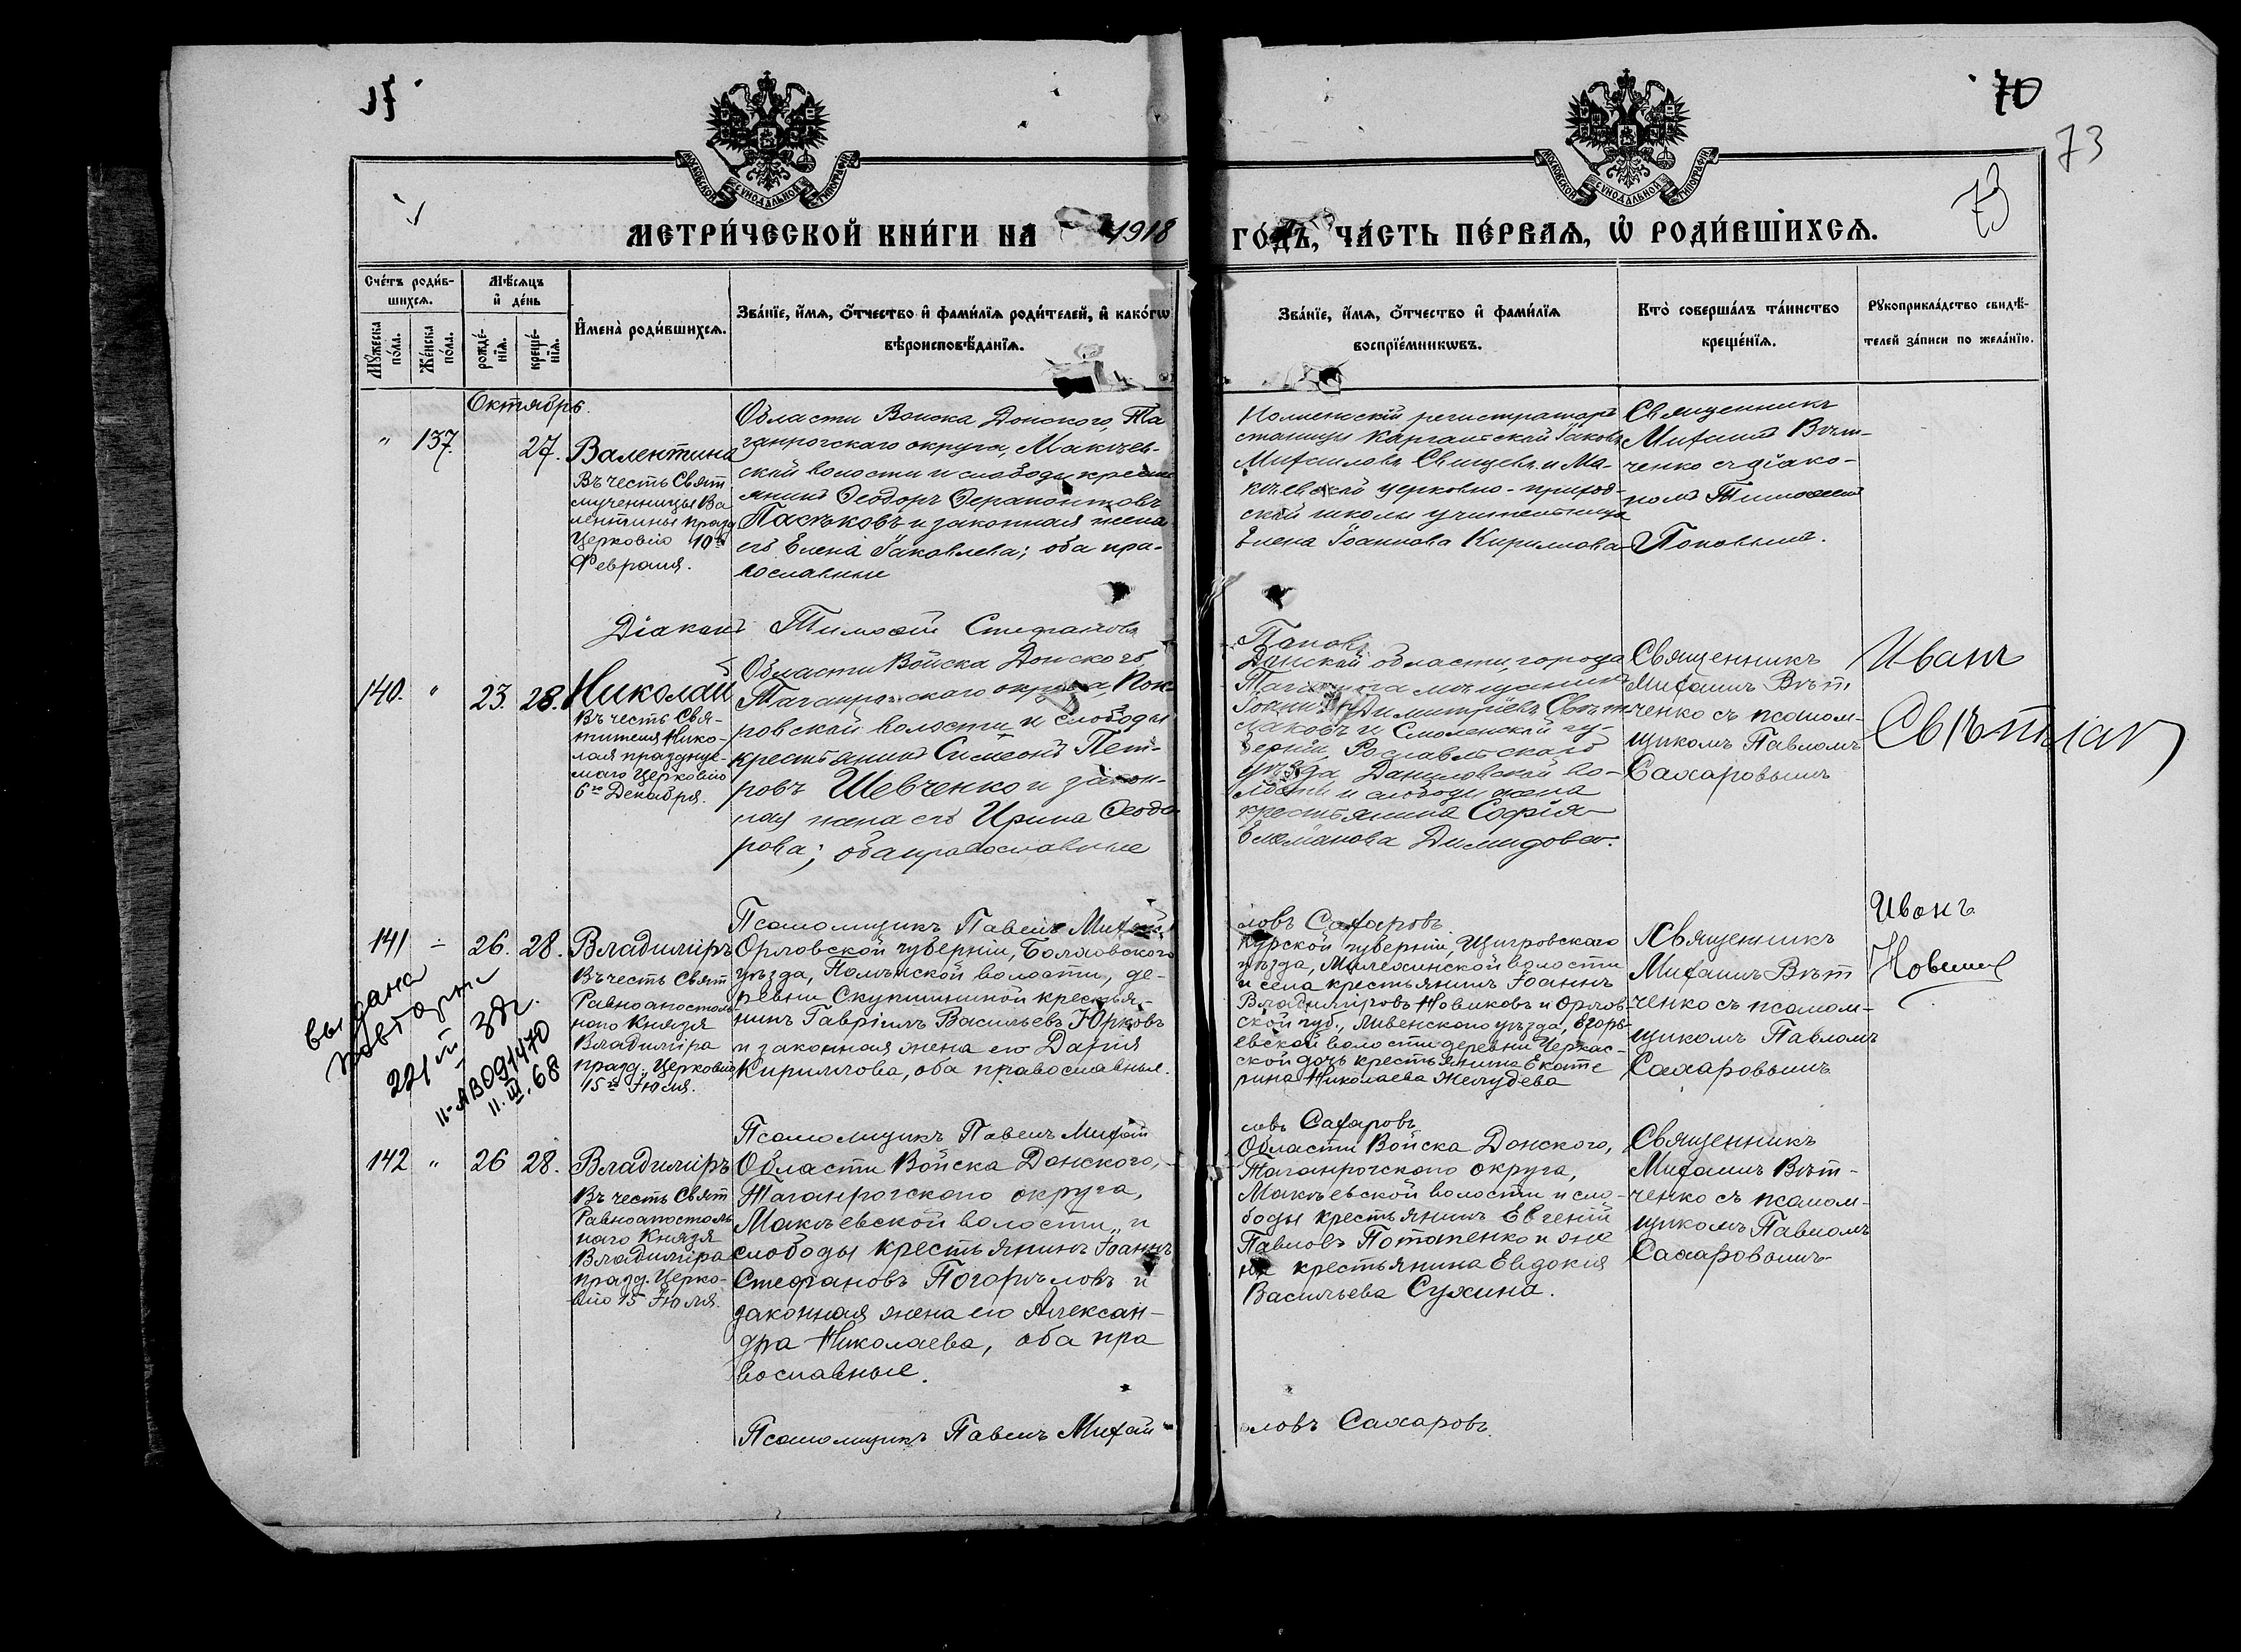 70
73
73
МОСКОВСКОЙ СѴНОДАЛЬНОЙ ТИПОГРАФІИ
МОСКОВСКОЙ СѴНОДАЛЬНОЙ ТИПОГРАФІИ
МЕТРИ́ЧЕСКОЙ КНИ́ГИ НА 1918 ГО́ДЪ, ЧА́СТЬ ПЕ́РВАѦ, Ѡ҆ РОДИ́ВШИХСѦ.
Сче́тъ роди́в-
шихсѧ.
Мꙋ́жеска
по́ла.
Же́нска
по́ла.
Мѣ́сѧцъ
и҆ де́нь
рожде́-
нїѧ.
креще́-
нїѧ.
И҆мена̀ роди́вшихсѧ.
Зва́нїе, и҆́мѧ, ѻ҆́тчество и҆ фами́лїѧ роди́телей, и҆ како́гѡ
вѣроисповѣ́данїѧ.
Зва́нїе, и҆́мѧ, ѻ҆́тчество и҆ фами́лїѧ
воспрїе́мникѡвъ.
Кто̀ соверша́лъ та́инство
креще́нїѧ.
Рꙋкоприкла́дство свидѣ́-
телей за́писи по жела́нїю.
Октябрь.
" 137. 27.
Валентина
Въ честь Свят
мученницы Ва
лентины празд
Церковію 10го
Февраля.
Области Войска Донского, Та
ганрогскаго округа, Макѣев-
ской волости и слободы кресть
янинъ Ѳеодоръ Ѳерапонтовъ
и законная жена
его Елена Іаковлева; оба пра-
вославные
регистраторъ
станицы Каргинской Іаковъ
Михаиловъ и Ма-
кѣевской церковно-приход-
ской школы учительница
Елена Іоаннова Кириллова
Священникъ
Михаилъ Вѣт-
ченко съ діако-
номъ Тимоѳеемъ
Поповымъ.
Діаконъ Тимоѳей Стефановъ Поповъ
140. " 23. 28.
Николай
Въ честь Свя-
тителя Нико-
лая празднуе-
маго Церковію
6го Декабря.
Области Войска Донского,
Таганрогскаго округа, Пок-
ровской волости и слободы
крестьянинъ Симеонъ Пет-
ровъ Шевченко и закон-
ная жена его Ирина Ѳеодо
рова; оба православные
Донской области, города
Таганрога мѣщанинъ
Іоаннъ Димитріевъ Свѣт
лаковъ и Смоленской гу
берніи, Рославльскаго
уѣзда Даниловской во-
лости и слободы жена
крестьянина Софія
Димидова.
Священникъ
Михаилъ Вѣт
ченко съ псалом-
щикомъ Павломъ
Сахаровымъ
Иванъ
Псаломщикъ Павелъ Михайловъ Сахаровъ
141 ÷ 26. 28.
Владиміръ
Въ честь Свят
Равноапостоль
наго Князя
Владиміра
празд. Церковію
15го Іюля.
Орловской губерніи, Болховского
уѣзда, волости, де-
ревни крестья-
нинъ Гавріилъ Васильевъ Юрковъ
и законная жена его Дарія
Кириллова, оба православные.
Курской губерніи, Щигровскаго
уѣзда, волости
и села крестьянинъ Іоаннъ
Владиміровъ Новиковъ и Орлов-
ской губ., Ливенскаго уѣзда, Егорь-
евской волости деревни Черкас-
ской дочь крестьянина Екате
рина Николаева Желудева
Священникъ
Михаилъ Вѣт
ченко съ псалом-
щикомъ Павломъ
Сахаровымъ
Иванъ
выдана
повторны
II-АВ091470
11.III.68
Псаломщикъ Павелъ Михайловъ Сахаровъ
142 " 26 28.
Владиміръ
Въ честь Свят
Равноапостоль
наго Князя
Владиміра
празд. Церко-
вію 15 Іюля.
Области Войска Донского,
Таганрогскаго округа,
Макѣевской волости и
слободы крестьянинъ Іоаннъ
Стефановъ Погорѣловъ и
законная жена его Алексан-
дра Николаева, оба пра
вославные.
Области Войска Донского,
Таганрогскаго округа,
Макѣевской волости и сло-
боды крестьянинъ Евгеній
Павловъ Потапенко и
крестьянина Евдокия
Васильева Сухина.
Священникъ
Михаилъ Вѣт-
ченко съ псалом-
щикомъ Павломъ
Сахаровымъ
Псаломщикъ Павелъ Михайловъ Сахаровъ.